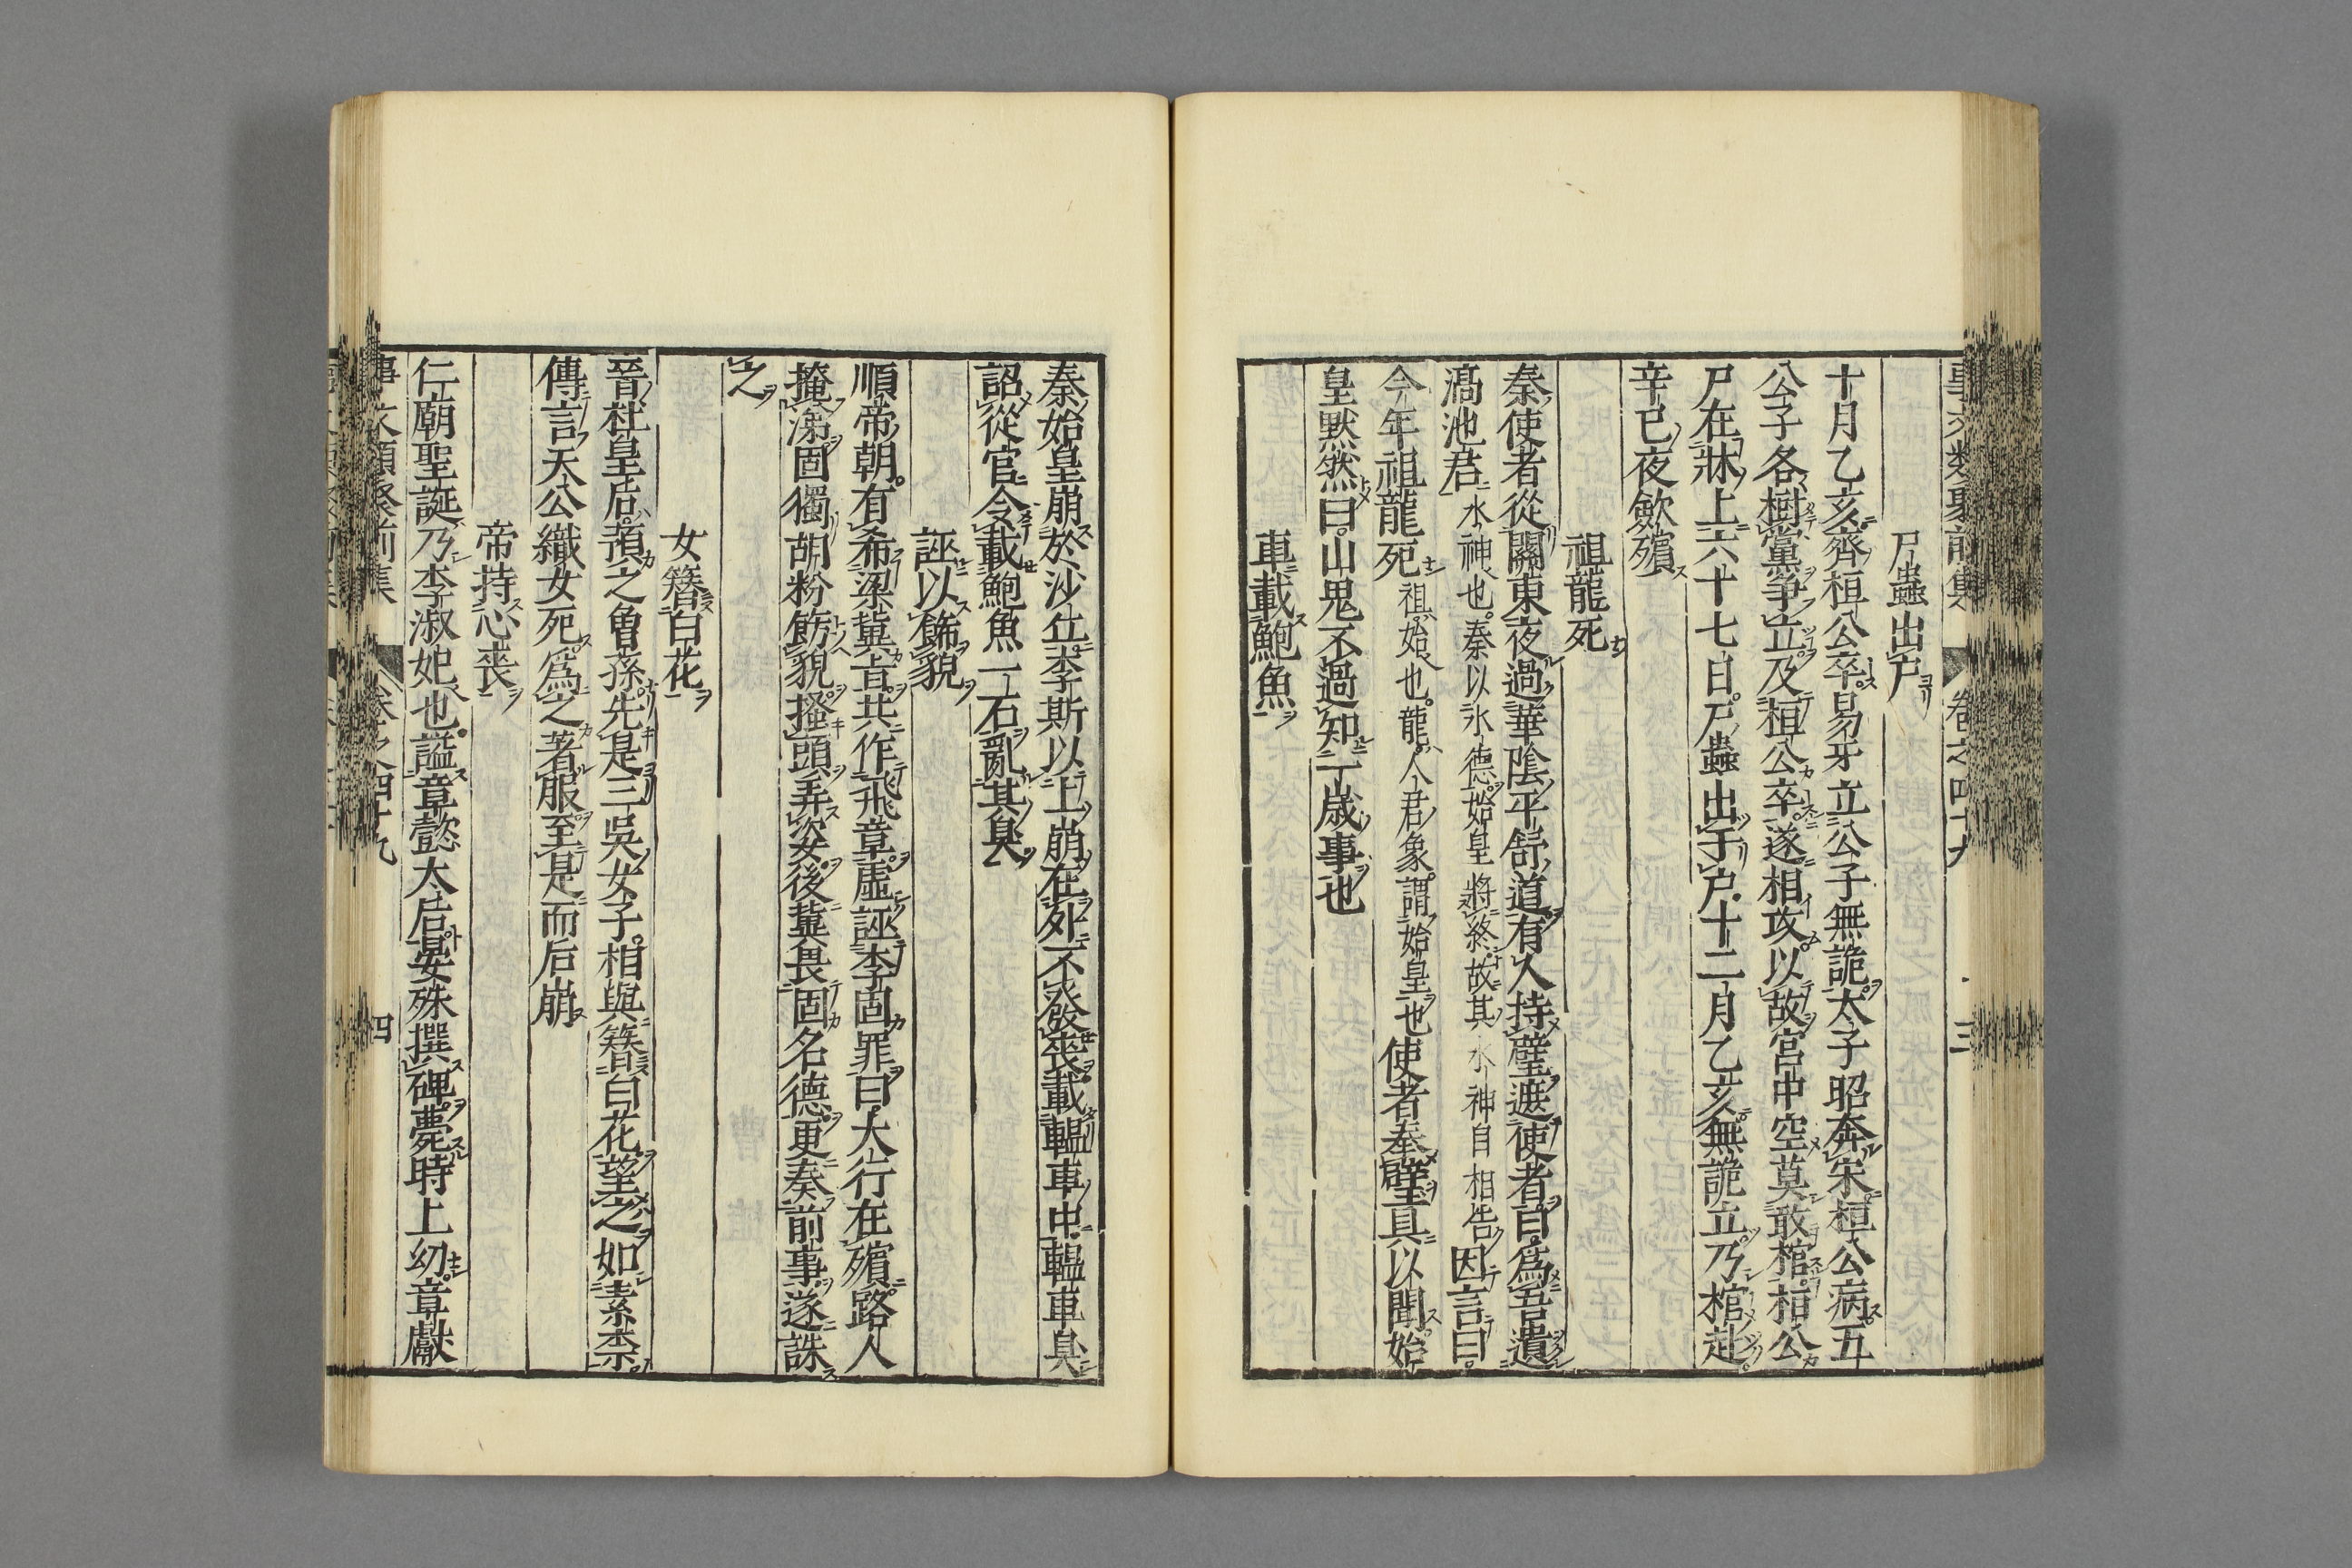 事文類聚前集 卷之四十九 三
尸蟲出戸
十月乙亥齊桓公卒易牙立公子無詭太子昭奔宋桓公病五
公子各樹黨爭立及桓公卒遂相攻以故宮中空莫敢棺桓公
尸在牀上六十七日尸蟲出于戸十二月乙亥無詭立乃棺赴
辛巳夜歛殯
祖龍死
秦使者從關東夜過華陰平舒道有人持璧遮使者曰爲吾遺
滈池君水神也秦以水德始皇將終故其水神自相告因言曰
今年祖龍死祖始也龍人君象謂始皇也使者奉璧具以聞始
皇默然曰山鬼不過知一歳事也
車載鮑魚
秦始皇崩於沙丘李斯以上崩在外不發喪載輼車中輼車臭
詔從官令載鮑魚一石亂其臭
誣以飾貌
順帝朝有希梁冀旨共作飛章虛誣李固罪曰大行在殯路人
掩涕固獨胡粉餝貌搔頭弄姿後冀畏固名德更奏前事遂誅
之
女簪白花
晉杜皇后蕷之曾孫先是三吳女子相與簪白花望之如素柰
傳言天公織女死爲之著服至是而后崩
帝持心喪
仁廟聖誕乃李淑妃也謚章懿太后晏殊撰碑薨時上幼章獻
事文類聚前集 卷之四十九 四